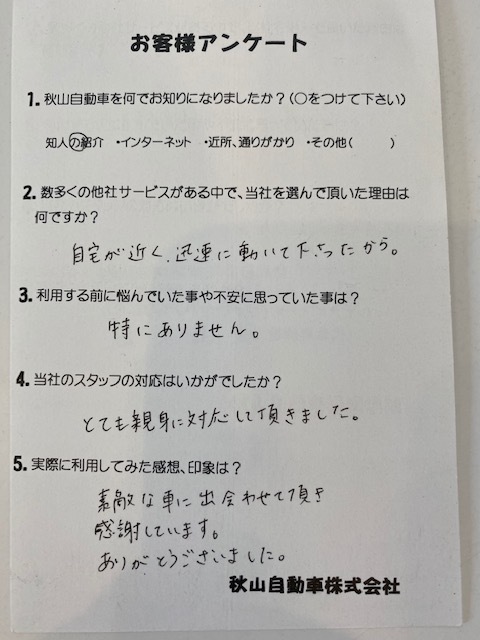 お客様アンケート
1. 秋山自動車を何でお知りになりましたか？(○をつけて下さい)
知人の紹介 ・インターネット ・近所、通りがかり ・その他( )
2. 数多くの他社サービスがある中で、当社を選んで頂いた理由は
何ですか？
自宅が近く、迅速に動いて下さったから。
3. 利用する前に悩んでいた事や不安に思っていた事は？
特にありません。
4. 当社のスタッフの対応はいかがでしたか？
とても親身に対応して頂きました。
5. 実際に利用してみた感想、印象は？
素敵な車に出会わせて頂き
感謝しています。
ありがとうございました。
秋山自動車株式会社